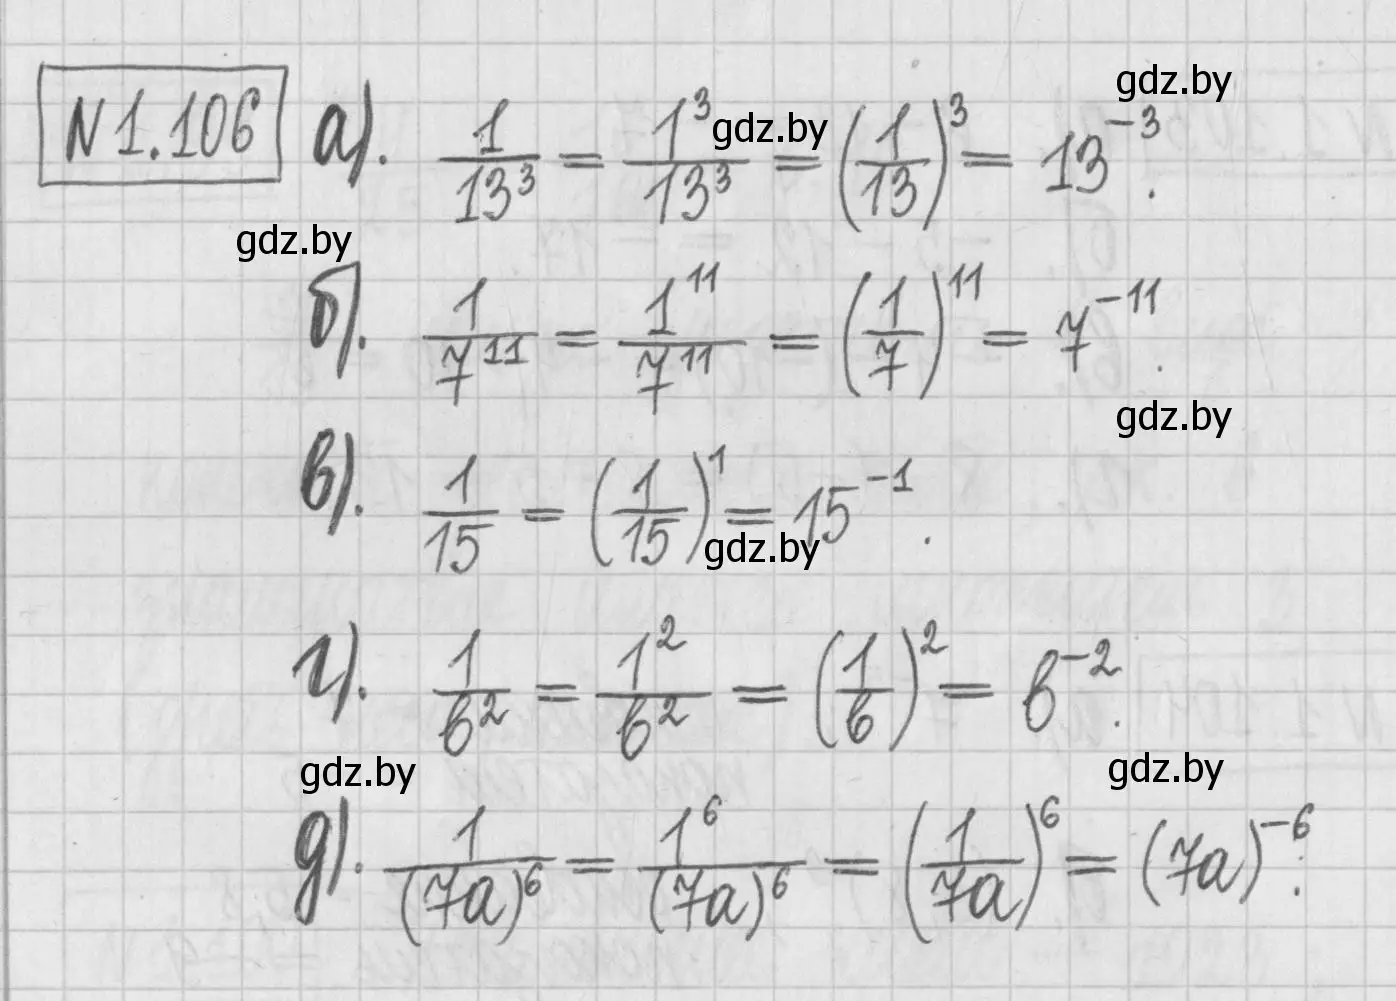 gdz.by
N 1.106 а). 1/13³ = 1³/13³ = (1/13)³ = 13⁻³.
gdz.by
gdz.by
б). 1/7¹¹ = 1¹¹/7¹¹ = (1/7)¹¹ = 7⁻¹¹.
gdz.by
в). 1/15 = (1/15)¹ = 15⁻¹.
gdz.by
г). 1/b² = 1²/b² = (1/b)² = b⁻².
gdz.by
gdz.by
д). 1/(7a)⁶ = 1⁶/(7a)⁶ = (1/7a)⁶ = (7a)⁻⁶.